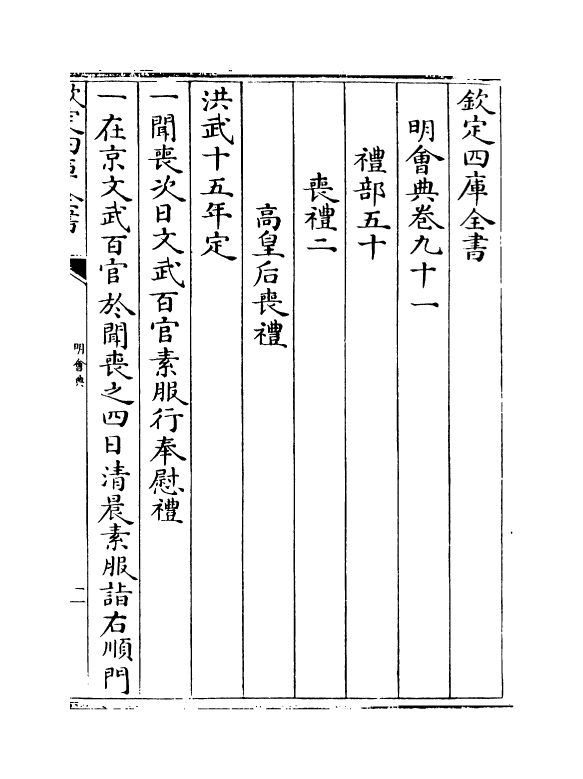 欽定四庫全書
明會典卷九十一
禮部五十
喪禮二
高皇后喪禮
洪武十五年定
一聞喪次日文武百官素服行奉慰禮
一在京文武百官於聞喪之四日清晨素服詣右順門
欽定四庫全書
明會典
二